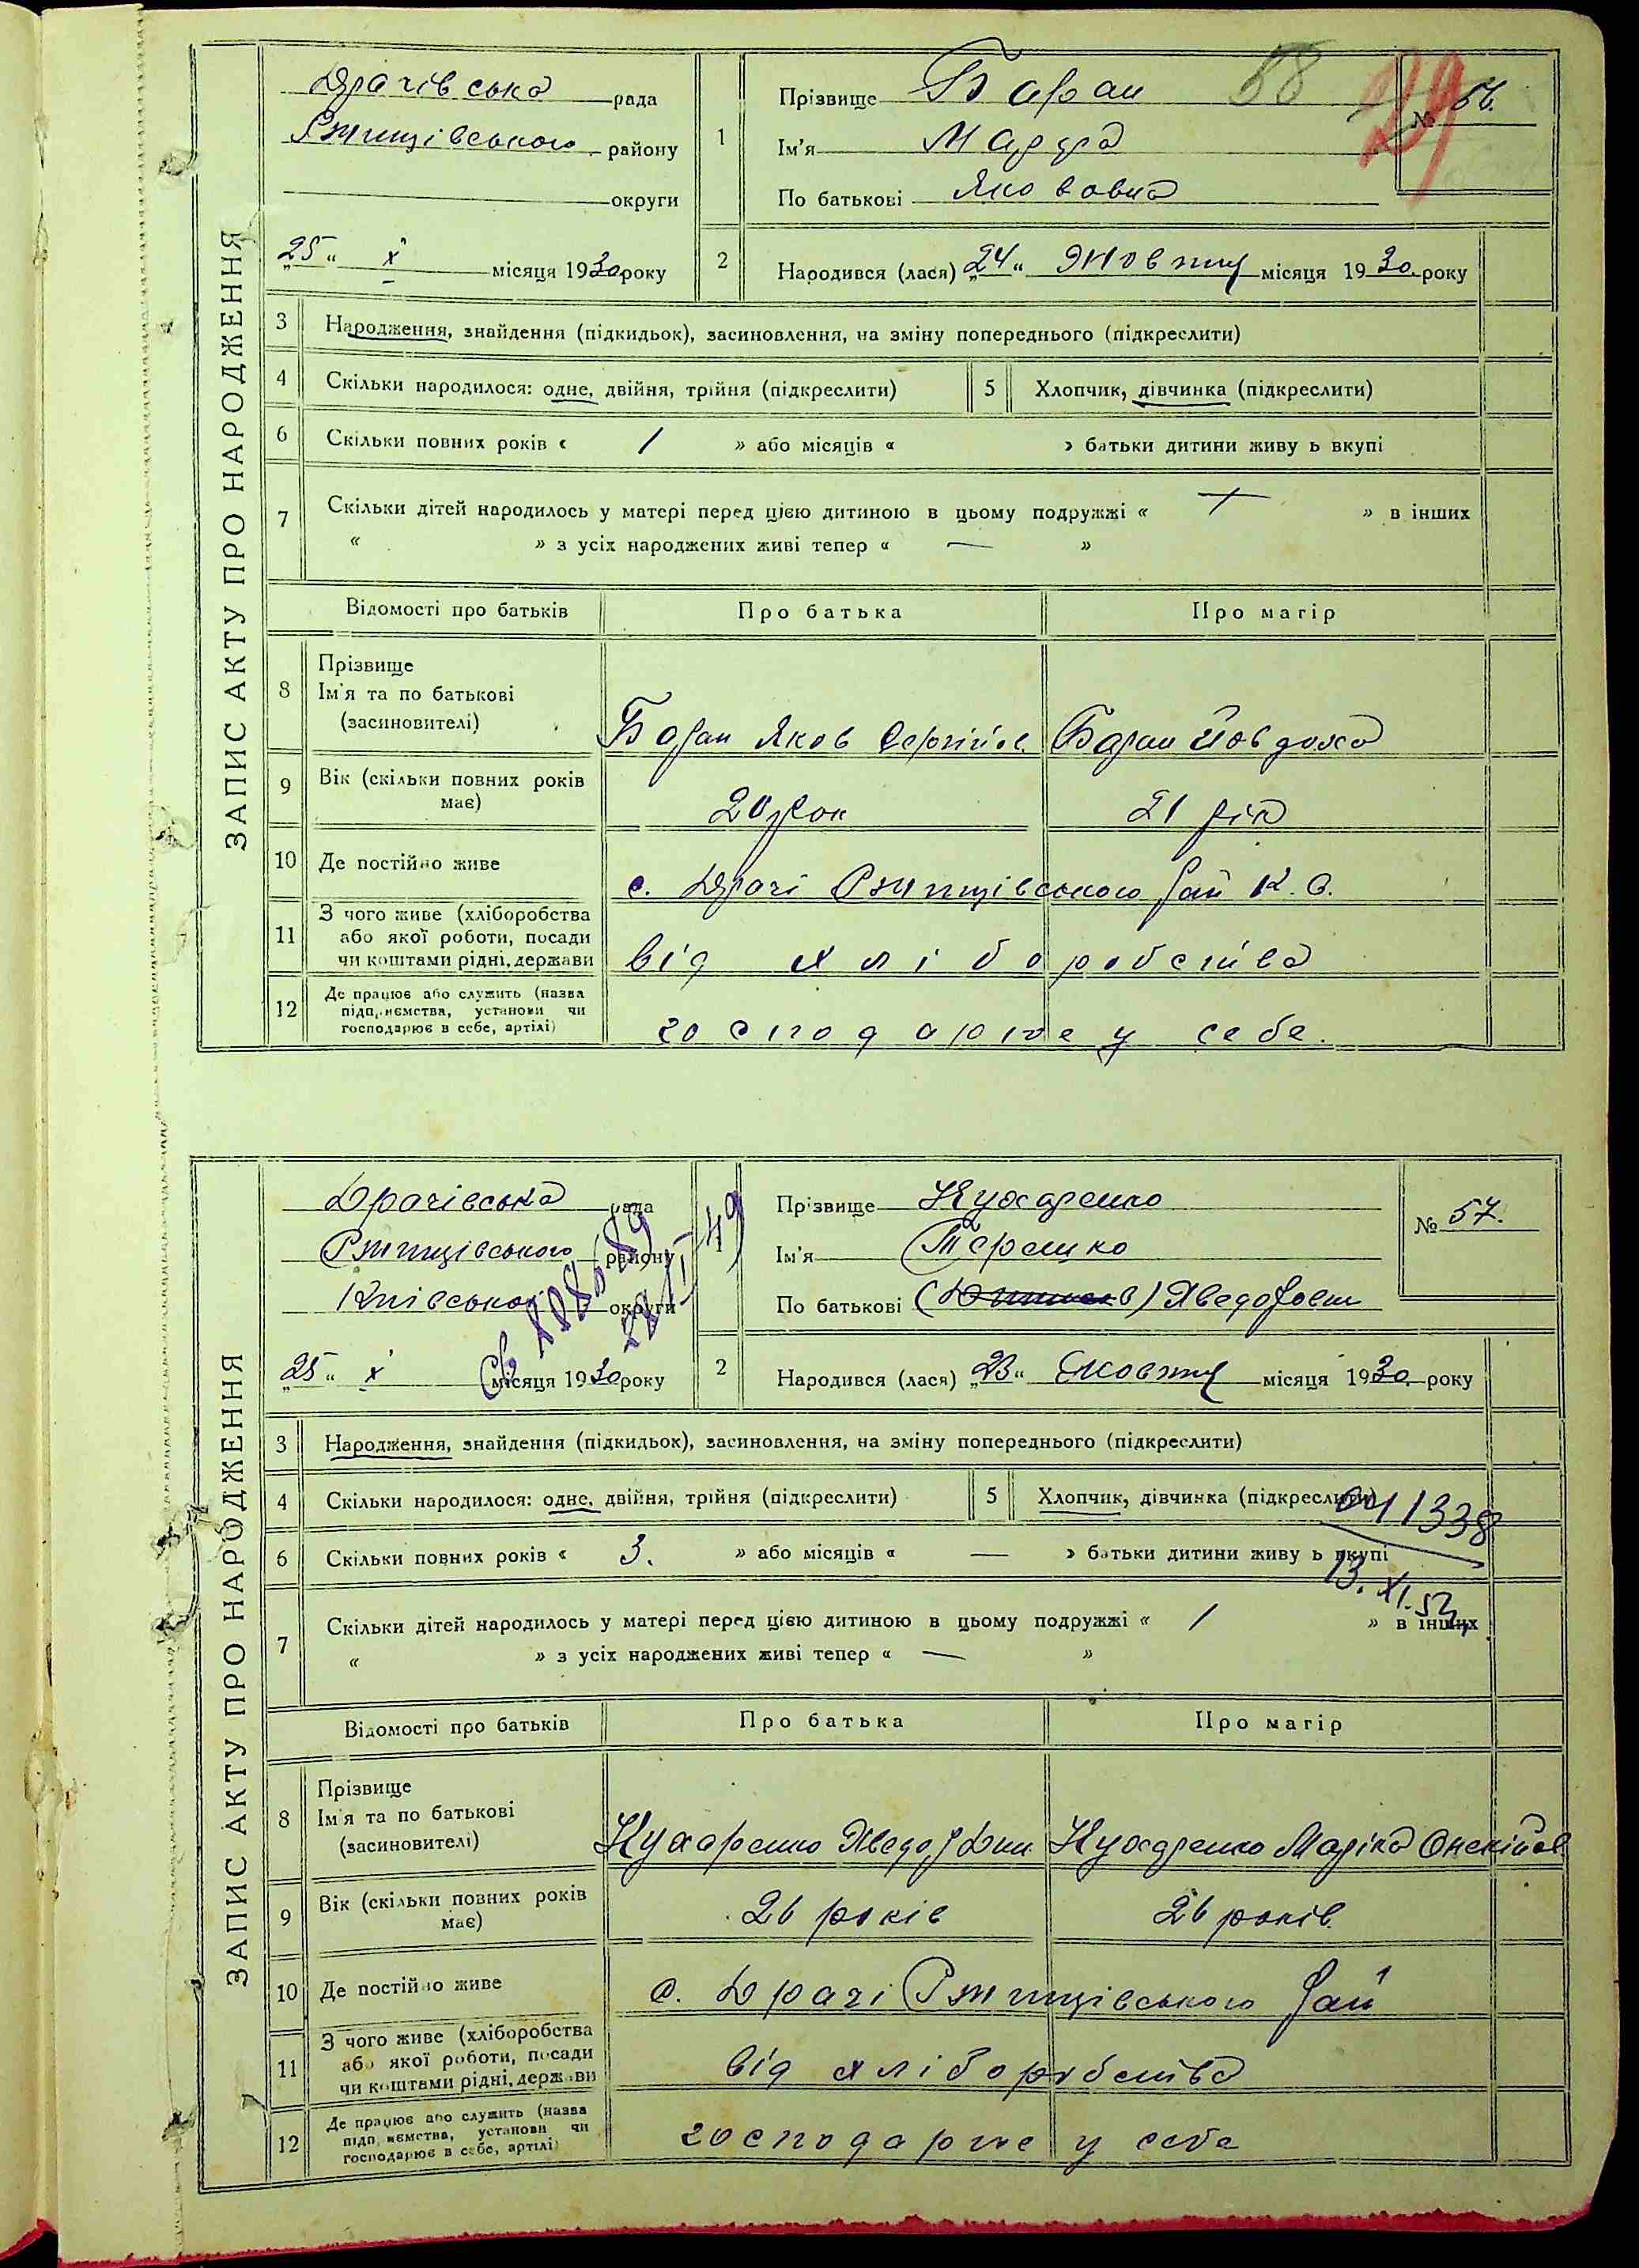 ЗАПИС АКТУ ПРО НАРОДЖЕННЯ
Драчівська рада
Ржищівського району
округи
„25“ X місяця 1930 року
1
Прізвище Баран
58
29
№ 56.
Ім'я Марфа
По батькові Якововна
2
Народився (лася) „24“ Жовтня місяця 1930 року
3 Народження, знайдення (підкидьок), засиновлення, на зміну попереднього (підкреслити)
4 Скільки народилося: одне, двійня, трійня (підкреслити) 5 Хлопчик, дівчинка (підкреслити)
6 Скільки повних років « 1 » або місяців « » батьки дитини живу ь вкупі
7 Скільки дітей народилось у матері перед цією дитиною в цьому подружжі « » в інших
« » з усіх народжених живі тепер « — »
Відомості про батьків Про батька Про матір
8 Прізвище
Ім'я та по батькові
(засиновителі)
Баран Яков Сергійов. Баран Йовдоха
9 Вік (скільки повних років має) 20 рок 21 рік
10 Де постійно живе с. Драчі Ржищівського рай К. О.
11 З чого живе (хліборобства
або якої роботи, посади
чи коштами рідні, держави
від хліборобства
12 Де працює або служить (назва
підприємства, установи чи
господарює в себе, артілі)
господарює у себе.
ЗАПИС АКТУ ПРО НАРОДЖЕННЯ
Драчівська рада
Ржищівського району
Київської округи
„25“ X місяця 1930 року
1
Прізвище Кухаренко
№ 57.
Ім'я Терешко
По батькові Хведорович
2
Народився (лася) „23“ Жовтня місяця 1930 року
3 Народження, знайдення (підкидьок), засиновлення, на зміну попереднього (підкреслити)
4 Скільки народилося: одне, двійня, трійня (підкреслити) 5 Хлопчик, дівчинка (підкреслити)
6 Скільки повних років « 3. » або місяців « — » батьки дитини живу ь вкупі
13. XI. 52
7 Скільки дітей народилось у матері перед цією дитиною в цьому подружжі « 1 » в інших
« » з усіх народжених живі тепер « — »
Відомості про батьків Про батька Про матір
8 Прізвище
Ім'я та по батькові
(засиновителі)
Кухаренко Хведор Кухаренко
9 Вік (скільки повних років має) 26 років 26 років.
10 Де постійно живе с. Драчі Ржищівського Рай
11 З чого живе (хліборобства
або якої роботи, посади
чи коштами рідні, держави
від хліборобства
12 Де працює або служить (назва
підприємства, установи чи
господарює в себе, артілі)
господарює у себе